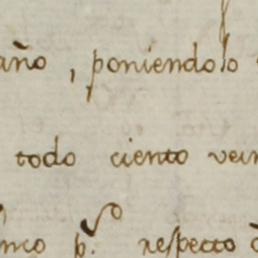 año, poniendolo
todo ciento vein
inco p.s respecto